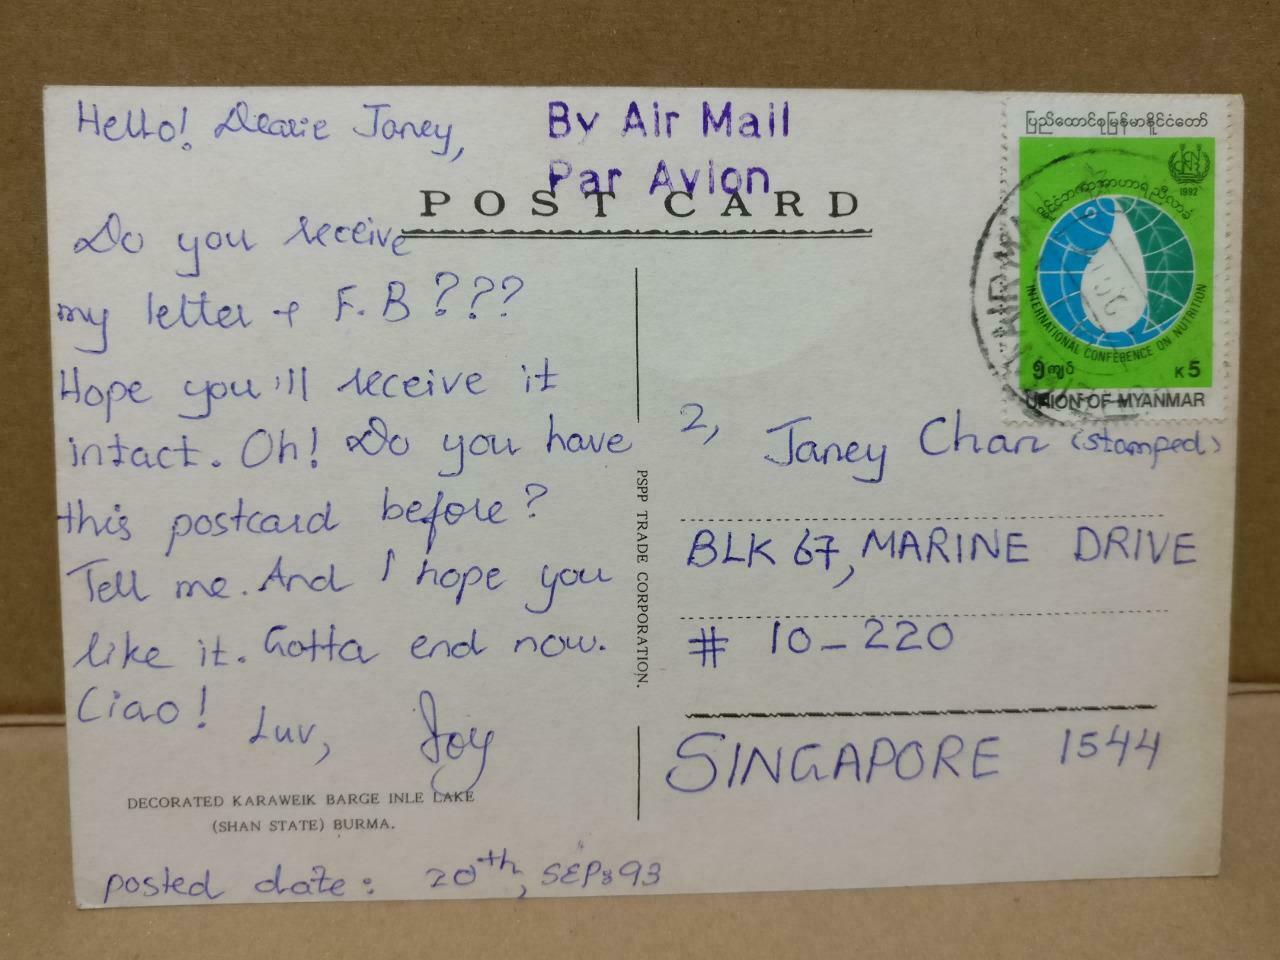 Hello! Dearie Janey,
By Air Mail
Par Avion
POST CARD
Do you receive
my letter & F.B ???
Hope you'll receive it
intact. Oh! Do you have
this postcard before?
Tell me. And I hope you
like it. Gotta end now.
Ciao!
Luv, Joy
DECORATED KARAWEIK BARGE INLE LAKE
(SHAN STATE) BURMA.
posted date: 20th, SEP, 93
PSPP TRADE CORPORATION.
ပြည်ထောင်စုမြန်မာနိုင်ငံတော်
1992
INTERNATIONAL CONFERENCE ON NUTRITION
၅ကျပ်
K5
UNION OF MYANMAR
2, Janey Chan (stamped)
BLK 67, MARINE DRIVE
# 10-220
SINGAPORE 1544